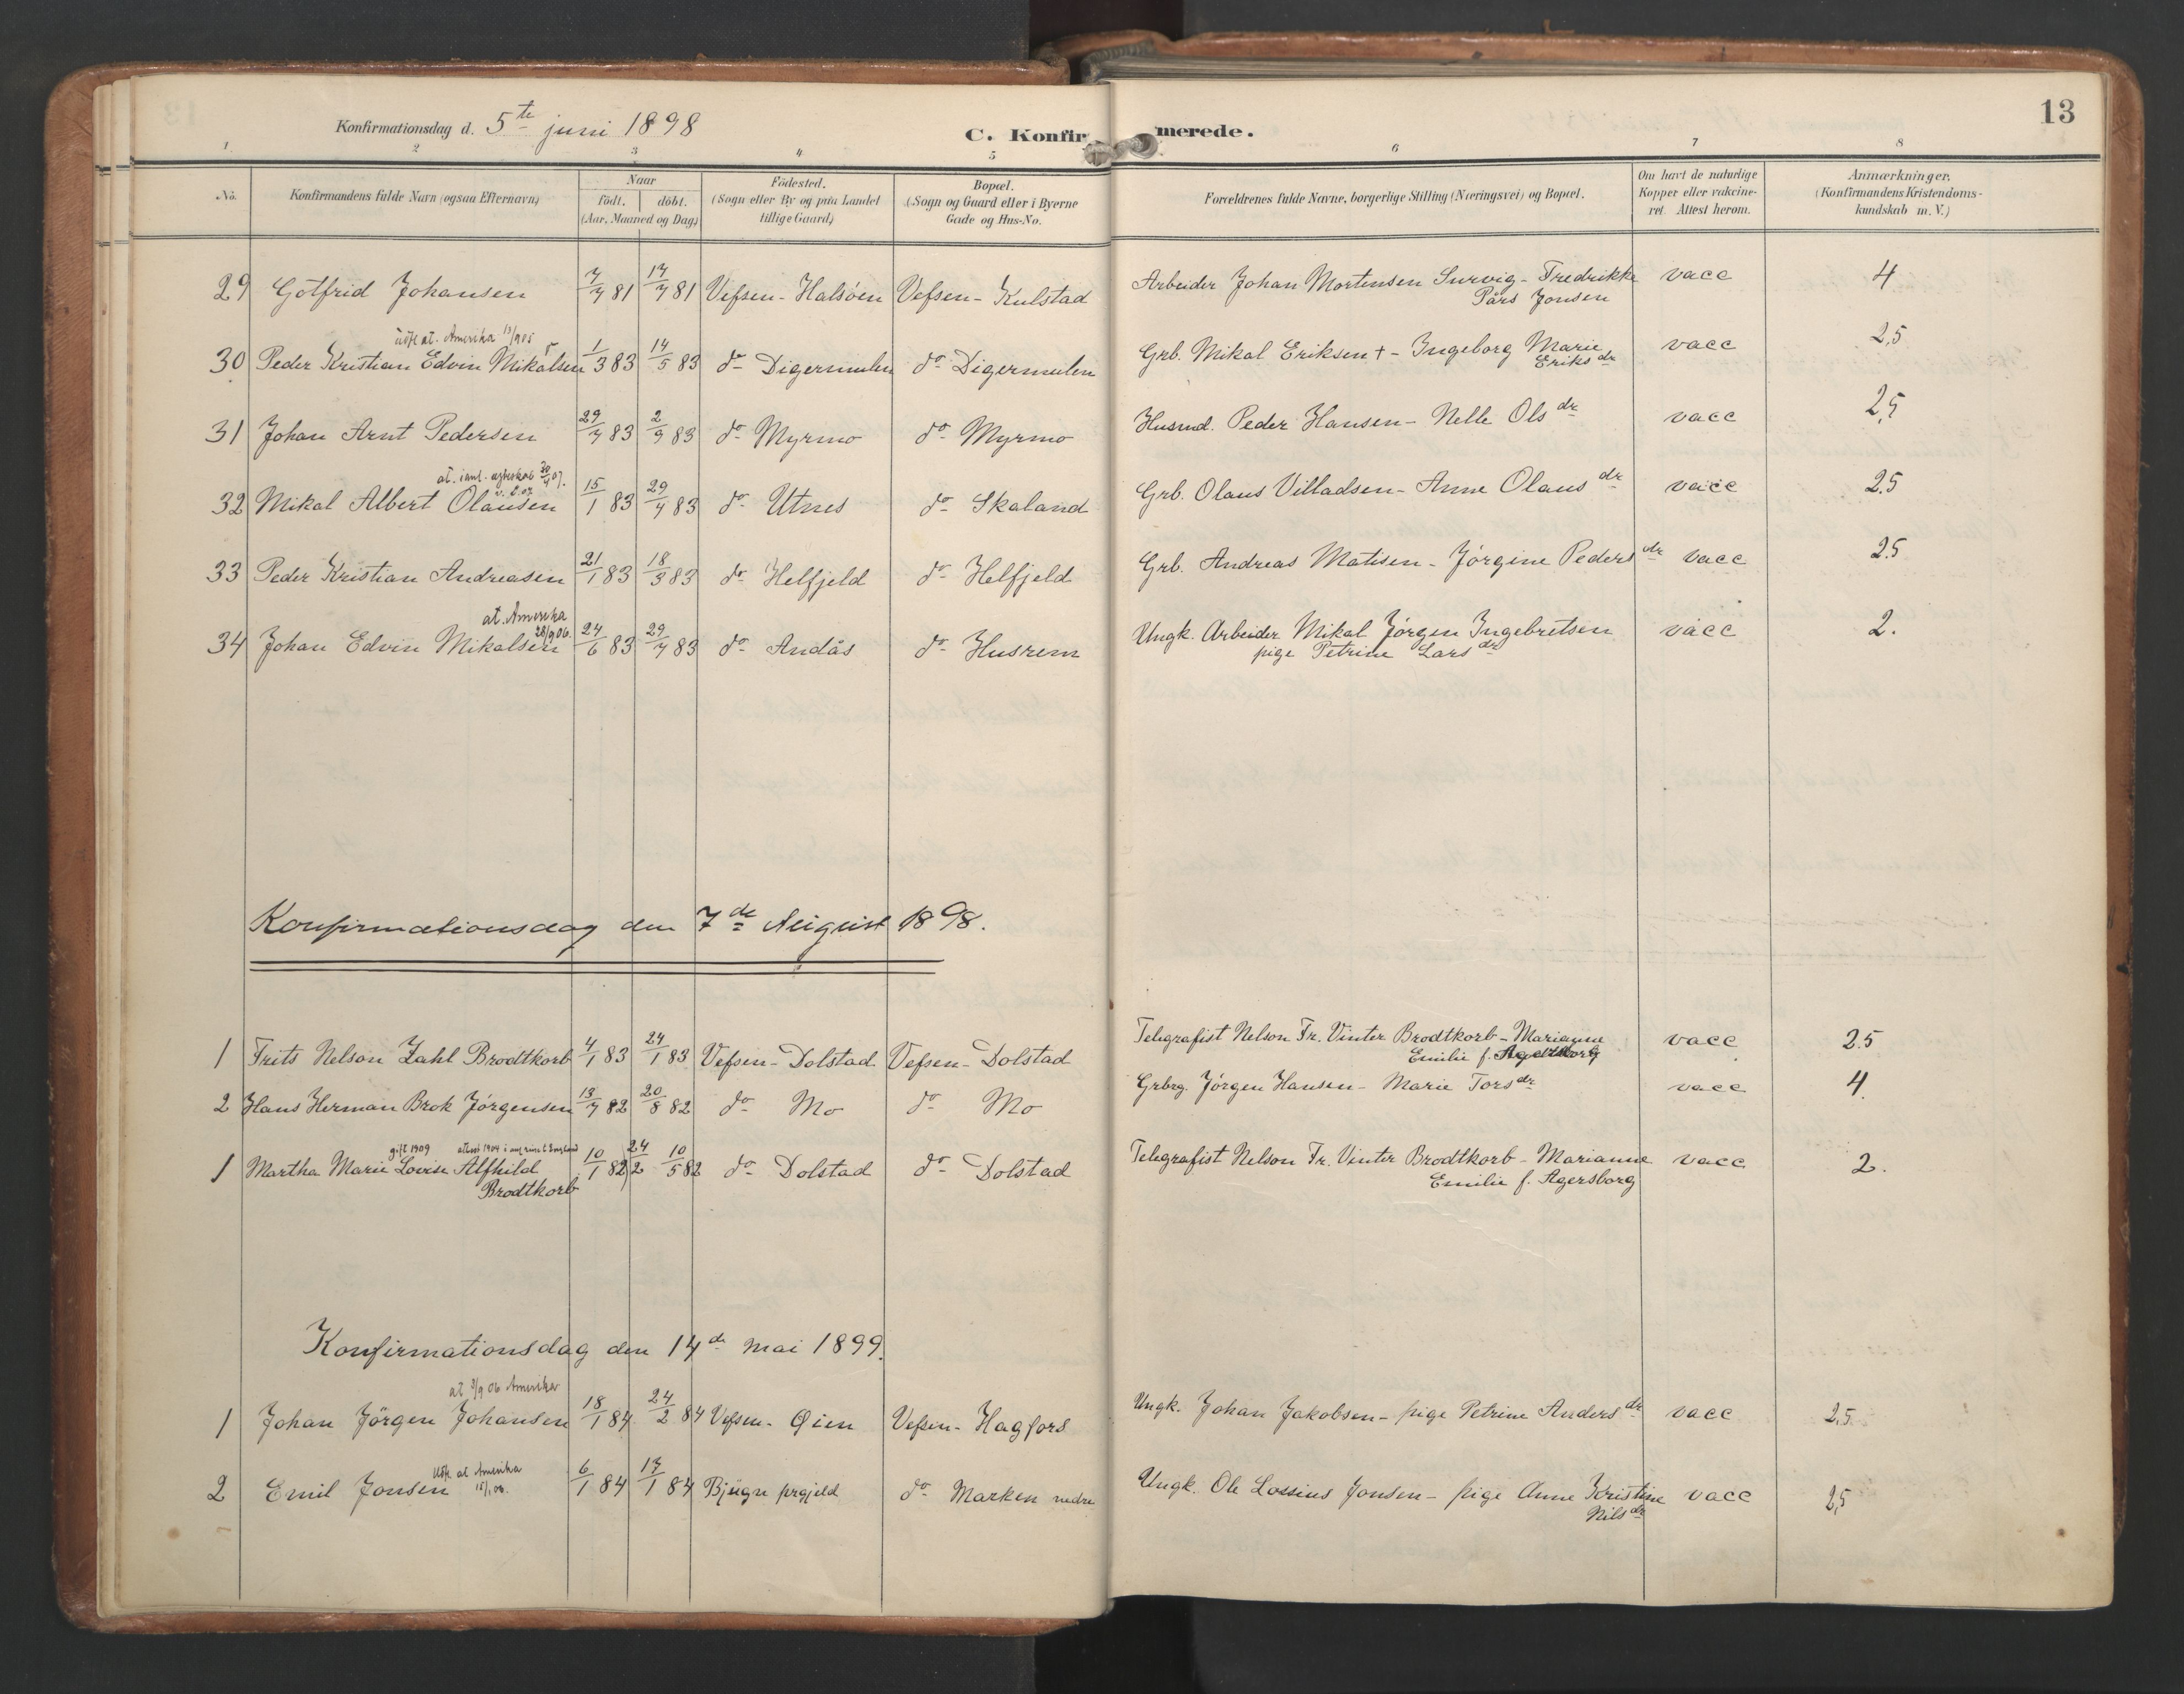 13
Konfirmationsdag d. 5te juni 1898
C. Konfirmerede.
1. 2 3 4 5 6 7 8
No. Konfirmandens fulde Navn (ogsaa Efternavn) Naar födt. döbt. (Aar, Maaned og Dag) Födested. (Sogn eller By og paa Landet tillige Gaard) Bopæl. (Sogn og Gaard eller i Byerne Gade og Hus-No. Forældrenes fulde Navne, borgerlige Stilling (Næringsvei) og Bopæl. Om havt de naturlige Kopper eller vakcineret. Attest herom. Anmærkninger, (Konfirmandens Kristendomskundskab m. V.)
29 Gotfrid Johansen 7/7 81 17/7 81 Vefsen - Halsöen Vefsen - Kulstad Arbeider Johan Mortensen - Fredrikke vacc 4
Jonsen
at. Amerika 13/9 05
30 Peder Kristian Edvin Mikalsen 1/3 83 14/5 83 do Digermulen do Digermulen Grb. Mikal Eriksen + - Ingeborg Marie Eriks dr vacc 2,5
31 Johan Arnt Pedersen 29/7 83 2/9 83 do Myrmo do Myrmo Husmd. Peder Hansen - Nelle Ols dr vacc 2,5
32 Mikal Albert Olausen 15/1 83 29/4 83 do Utnes do Skaland Grb. Olaus Villadsen - Anne Olaus dr vacc 2.5
33 Peder Kristian Andreasen 21/1 83 18/3 83 do Helfjeld do Helfjeld Grb. Andreas Matisen - Jörgine Peders dr vacc 2.5
at. Amerika 28/9 06.
34 Johan Edvin Mikalsen 24/6 83 29/7 83 do Andås do Husrem Ungk. Arbeider Mikal Jörgen Ingebretsen vacc 2.
pige Petrine Lars dr
Konfirmationsdag den 7de August 1898.
1 Frits Nelson Zahl Brodtkorb 4/1 83 24/1 83 Vefsen - Dolstad Vefsen - Dolstad Telegrafist Nelson Fr. Vinter Brodtkorb - Marianne Emilie f. Agersborg vacc 2.5
2 Hans Herman Brok Jörgensen 13/7 82 20/8 82 do Mo do Mo Grbrg. Jörgen Hansen - Marie Tors dr vacc 4.
gift 1909
1 Martha Marie Lovise Alfhild Brodtkorb 10/1 82 24/2 10/5 82 do Dolstad do Dolstad Telegrafist Nelson Fr. Vinter Brodtkorb - Marianne Emilie f. Agersborg vacc 2.
Konfirmationsdag den 14de mai 1899.
at 3/9 06 Amerika
1 Johan Jörgen Johansen 18/1 84 24/2 84 Vefsen - Øien Vefsen - Hagfors Ungk. Johan Jakobsen - pige Petrine Anders dr vacc 2,5
Udfl. at Amerika 15/1 06.
2 Emil Jonsen 6/1 84 17/1 84 Bjugn prgjeld do Marken nedre Ungk. Ole Lossius Jonsen - pige Anne Kristine Nils dr vacc 2,5